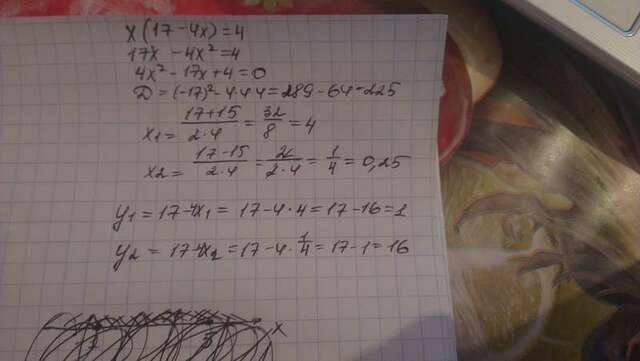 x(17-4x)=4
17x-4x²=4
4x²-17x+4=0
D=(-17)²-4·4·4=289-64=225
x₁=(17+15)/(2·4)=32/8=4
x₂=(17-15)/(2·4)=2/(2·4)=1/4=0,25
y₁=17-4x₁=17-4·4=17-16=1
y₂=17-4x₂=17-4·1/4=17-1=16
x